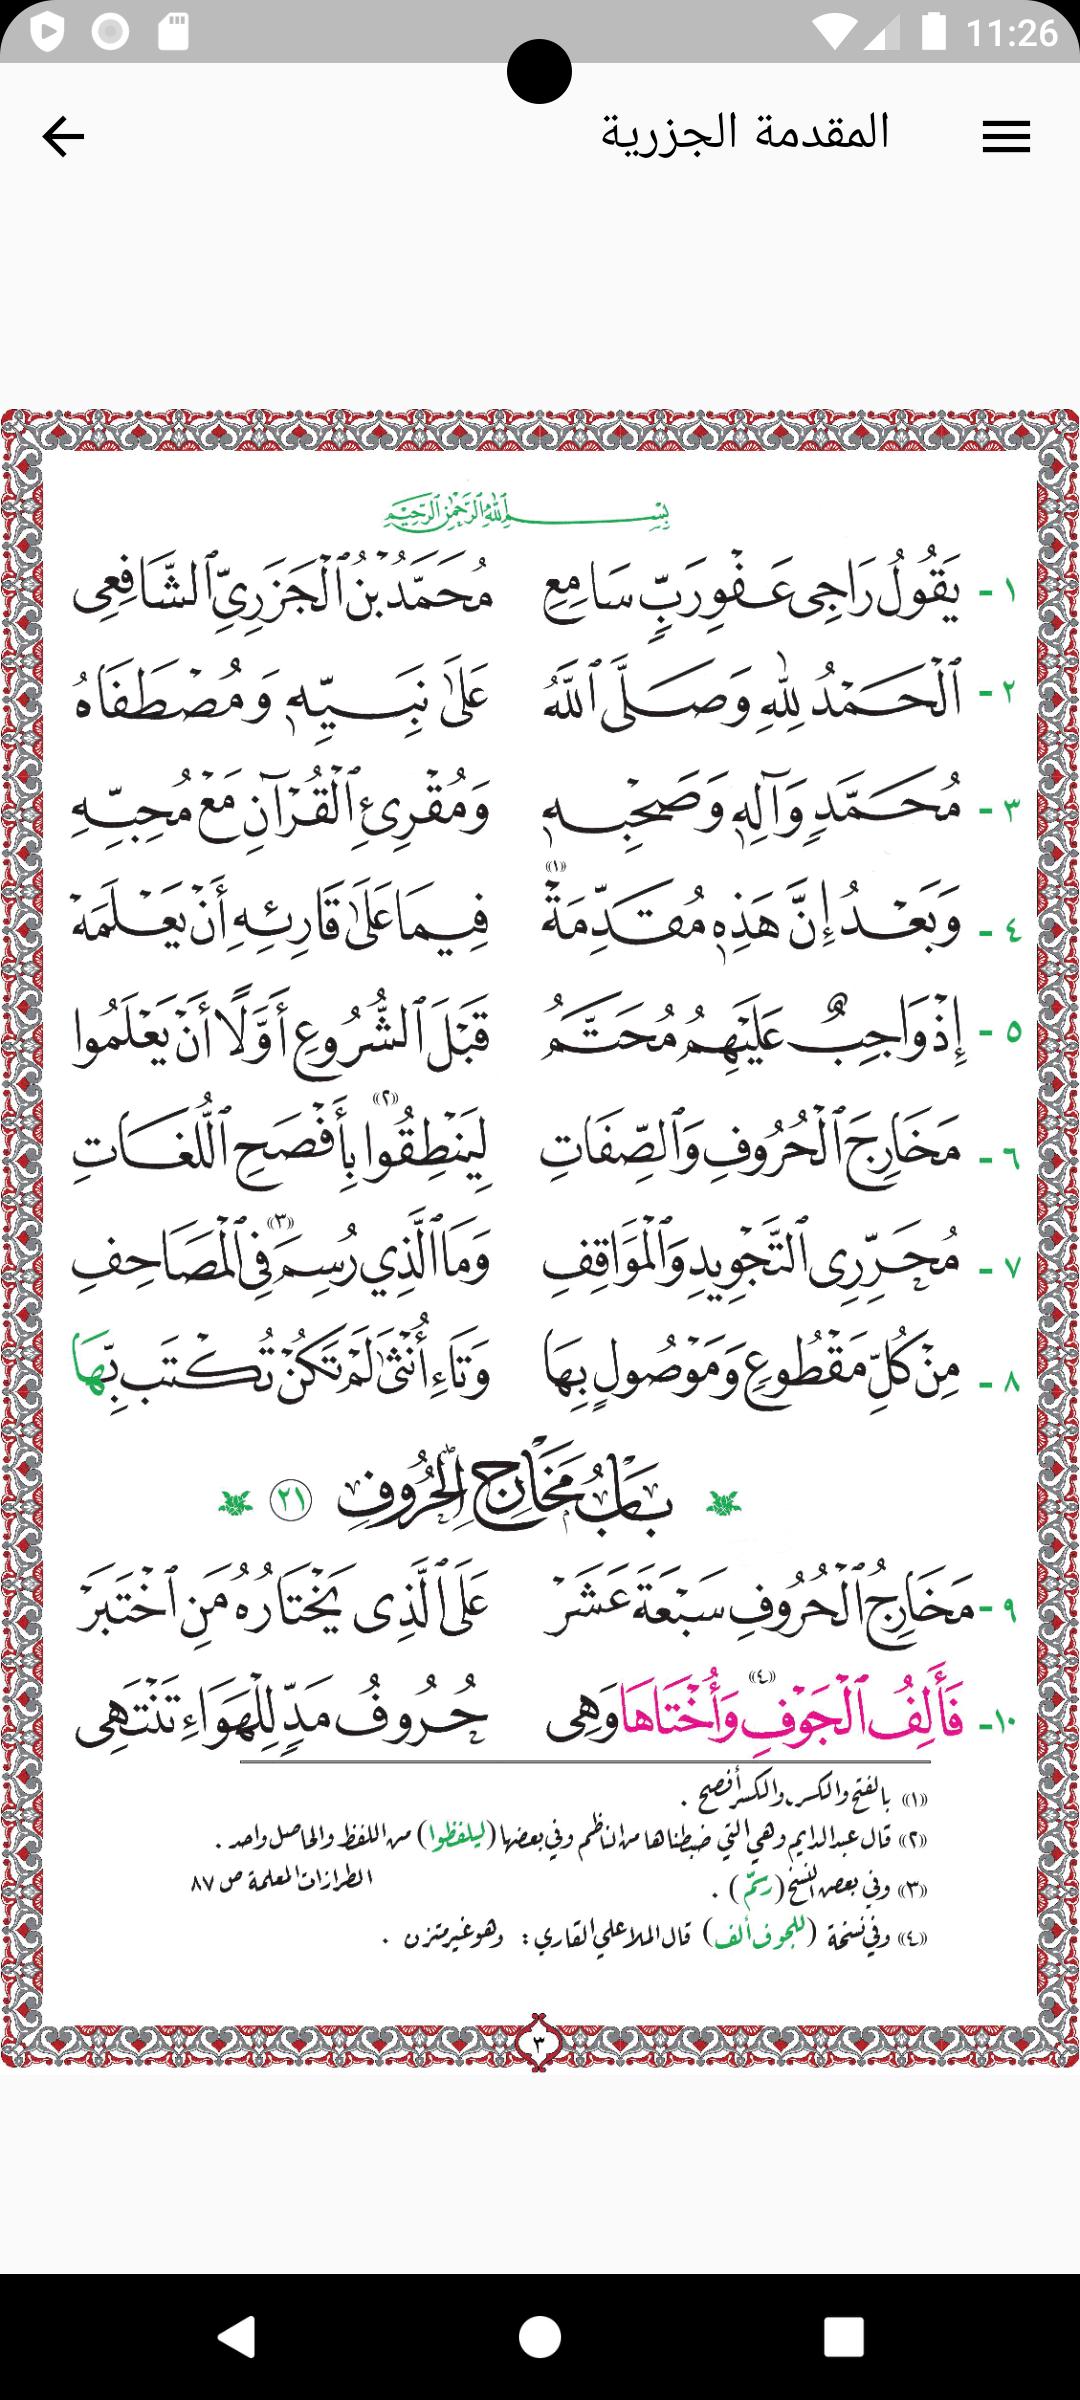 11:26
المقدمة الجزرية
بِسْمِ ٱللَّهِ ٱلرَّحْمَٰنِ ٱلرَّحِيمِ
١- يَقُولُ رَاجِى عَفْوِ رَبٍّ سَامِعِ مُحَمَّدُ بْنُ ٱلْجَزَرِىِّ ٱلشَّافِعِى
٢- ٱلْحَمْدُ لِلّٰهِ وَصَلَّى ٱللَّهُ عَلَىٰ نَبِيِّهِۦ وَمُصْطَفَاهُ
٣- مُحَمَّدٍ وَآلِهِۦ وَصَحْبِهِۦ وَمُقْرِئِ ٱلْقُرْآنِ مَعْ مُحِبِّهِ
٤- وَبَعْدُ إِنَّ هَذِهِۦ مُقَدِّمَةْ ((١)) فِيمَا عَلَىٰ قَارِئِهِ أَنْ يَعْلَمَهْ
٥- إِذْ وَاجِبٌ عَلَيْهِمُ مُحَتَّمُ قَبْلَ ٱلشُّرُوعِ أَوَّلًا أَنْ يَعْلَمُوا
٦- مَخَارِجَ ٱلْحُرُوفِ وَٱلصِّفَاتِ لِيَنْطِقُوا ((٢)) بِأَفْصَحِ ٱللُّغَاتِ
٧- مُحَرِّرِى ٱلتَّجْوِيدِ وَٱلْمَوَاقِفِ وَمَا ٱلَّذِي رُسِمَ ((٣)) فِي ٱلْمَصَاحِفِ
٨- مِنْ كُلِّ مَقْطُوعٍ وَمَوْصُولٍ بِهَا وَتَاءِ أُنْثَىٰ لَمْ تَكُنْ تُكْتَب بِّهَا
بَابُ مَخَارِجِ الْحُرُوفِ ٢١
٩- مَخَارِجُ ٱلْحُرُوفِ سَبْعَةَ عَشَرْ عَلَى ٱلَّذِى يَخْتَارُهُ مَنِ ٱخْتَبَرْ
١٠- فَأَلِفُ ٱلْجَوْفِ ((٤)) وَأُخْتَاهَا وَهِى حُرُوفُ مَدٍّ لِلْهَوَاءِ تَنْتَهِى
((١)) بالفتح والكسر والكسر أفصح .
((٢)) قال عبد الدايم وهي التي ضبطناها من الناظم وفي بعضها (ليلفظوا) من اللفظ والحاصل واحد .
الطرازات المعلمة ص ٨٧
((٣)) وفي بعض النسخ (رسم) .
((٤)) وفي نسخة (للجوف ألف) قال الملا علي القاري : وهو غير متزن .
٣